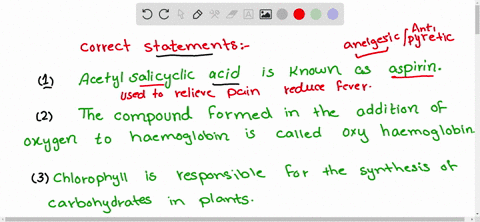 correct statements:-
analgesic/Anti pyretic
(1) Acetyl salicyclic acid is known as aspirin.
used to relieve pain reduce fever.
(2) The compound formed in the addition of
oxygen to haemoglobin is called oxy haemoglobin
(3) Chlorophyll is responsible for the synthesis of
carbohydrates in plants.